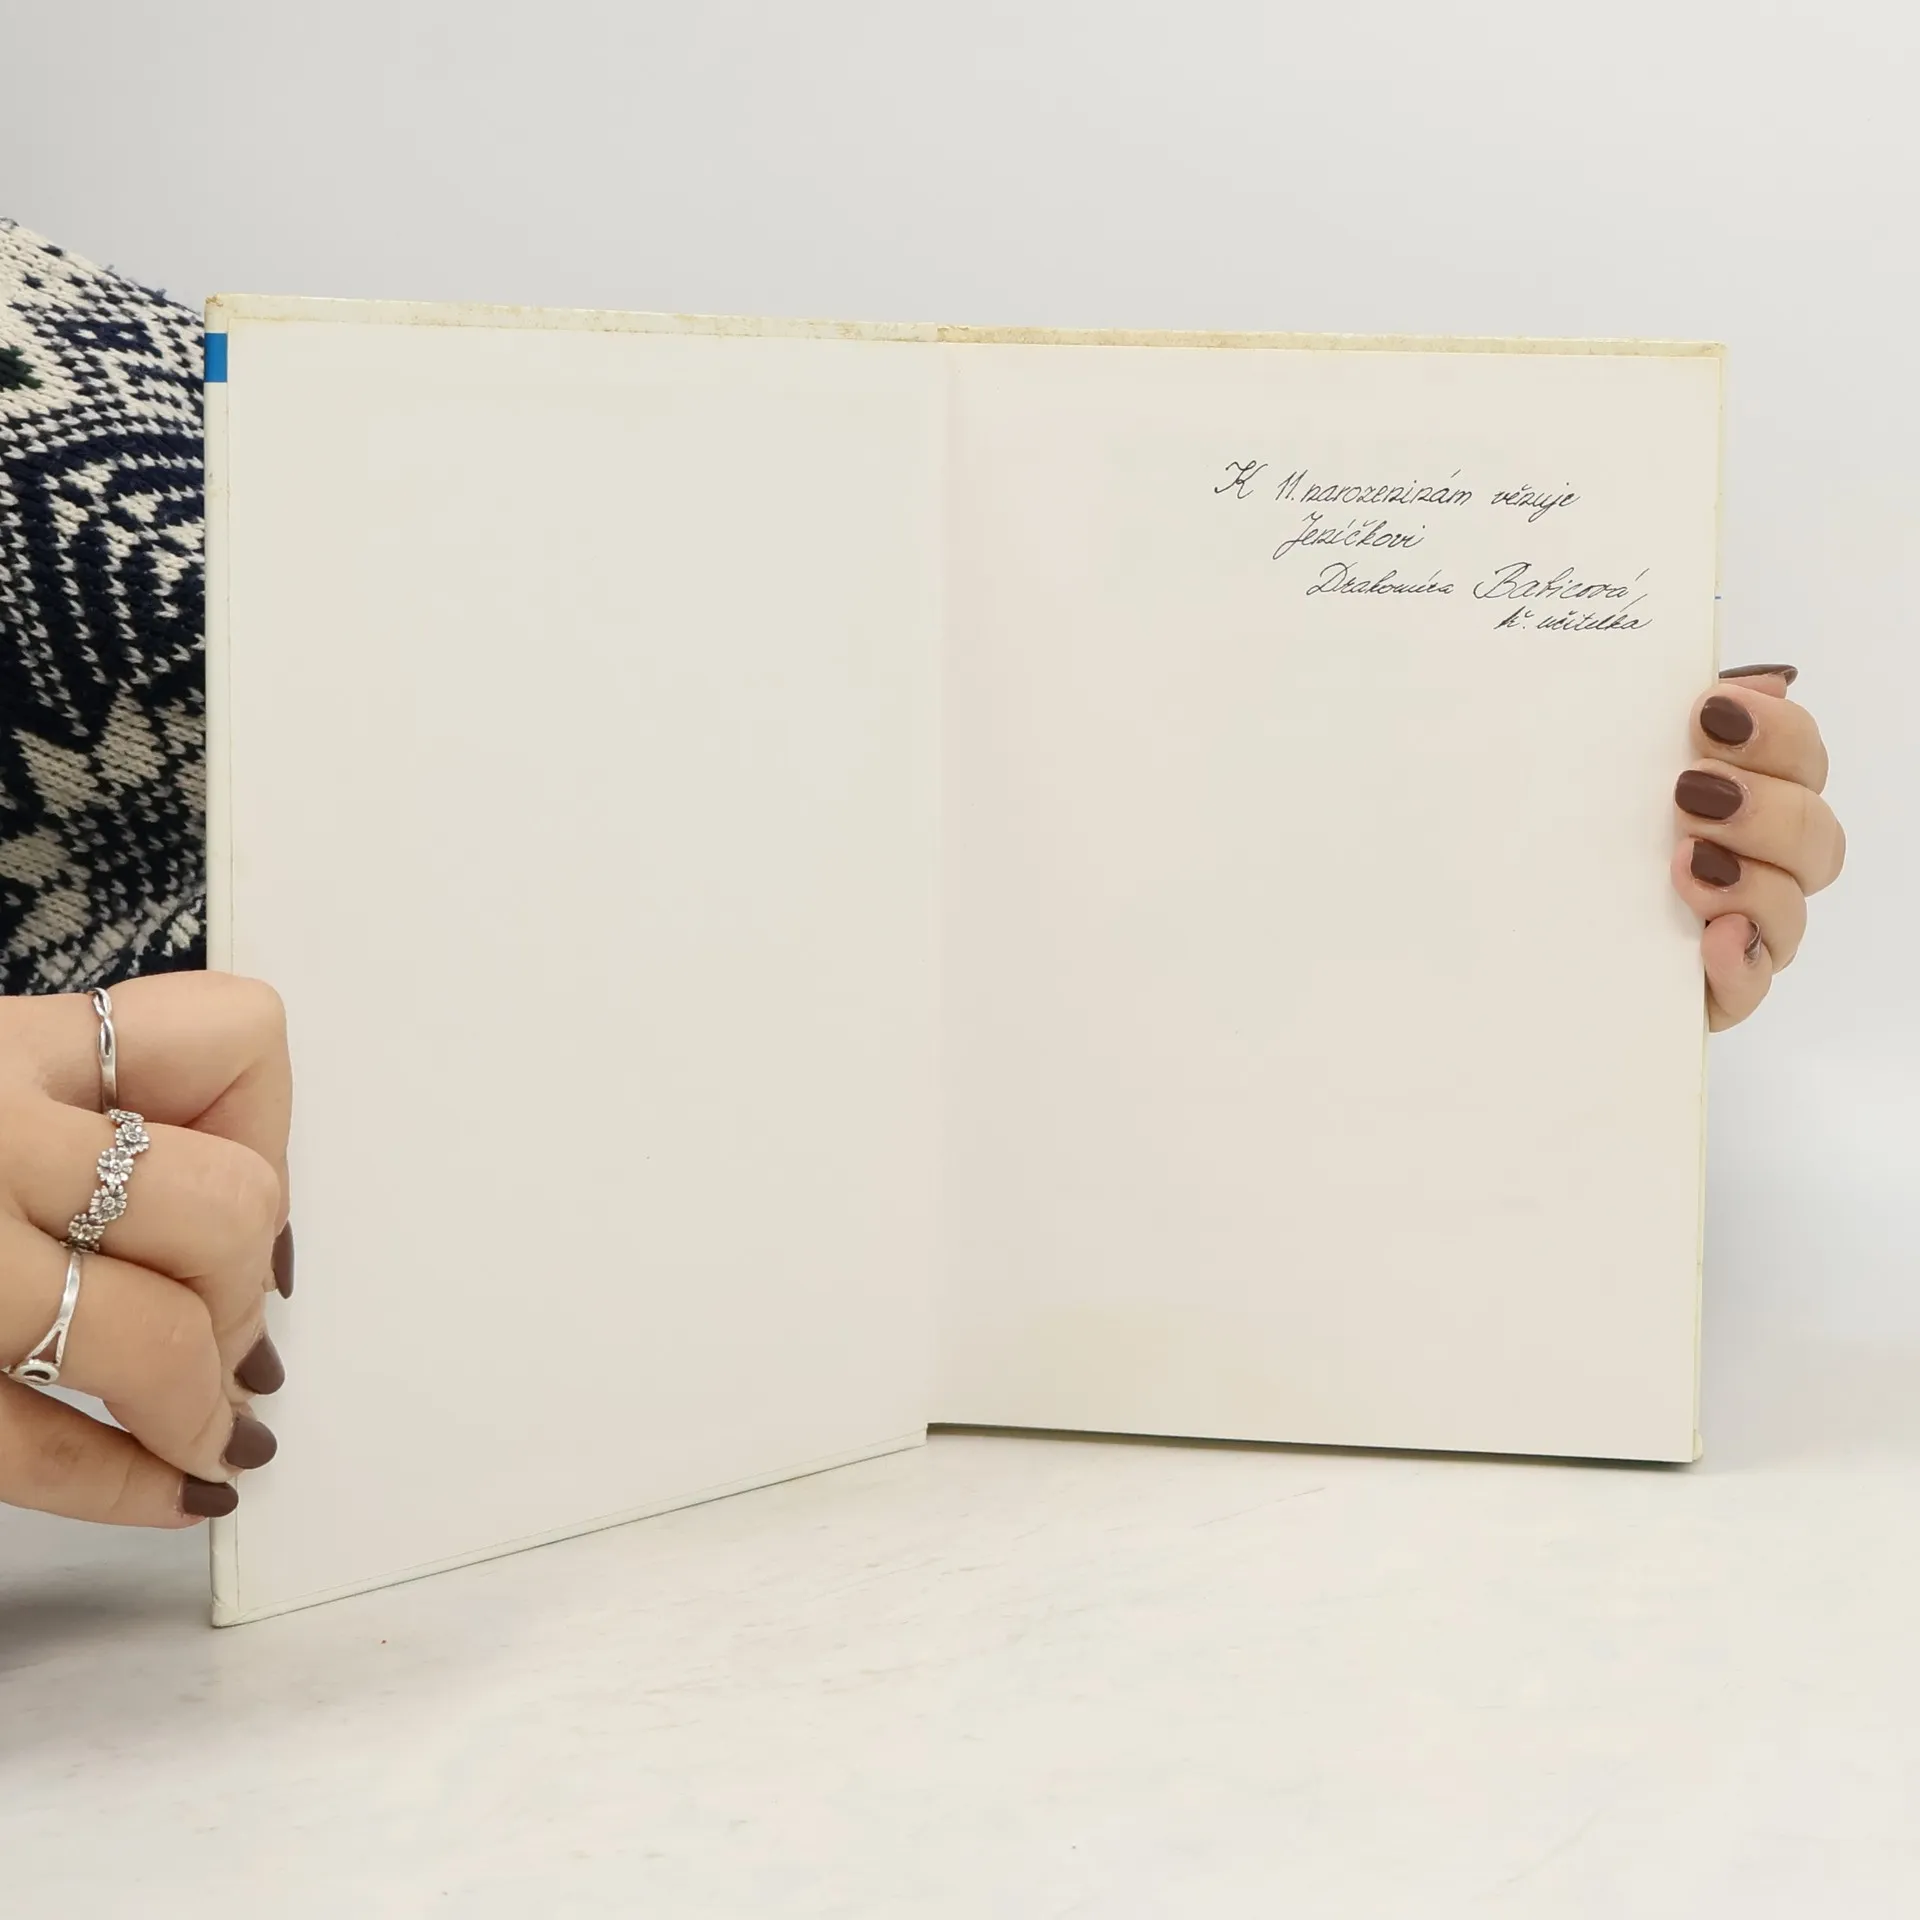 K 11. narozeninám věnuje
Jeníčkovi
Drahomíra Babicová,
tř. učitelka